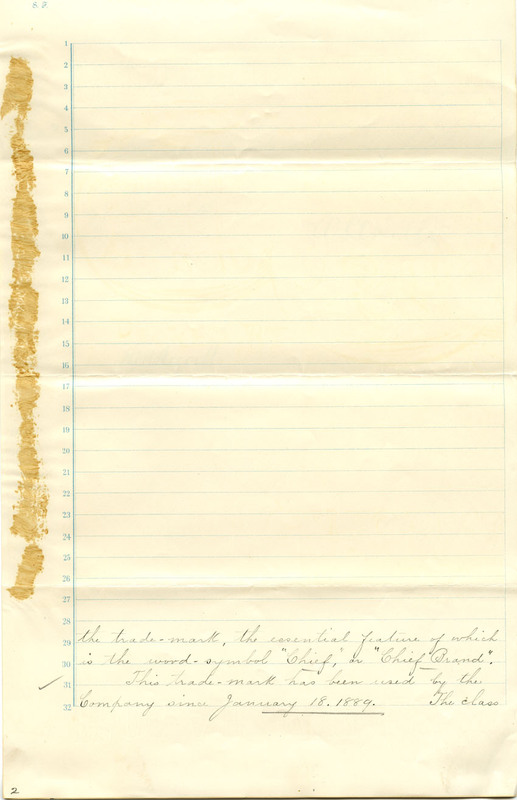 S. 2.
1
2
3
4
5
6
7
8
9
10
11
12
13
14
15
16
17
18
19
20
21
22
23
24
25
26
27
28
29 the trade-mark, the essential feature of which
30 is the word-symbol "Chief," or "Chief Brand".
31 This trade-mark has been used by the
32 Company since January 18. 1889. The class
2